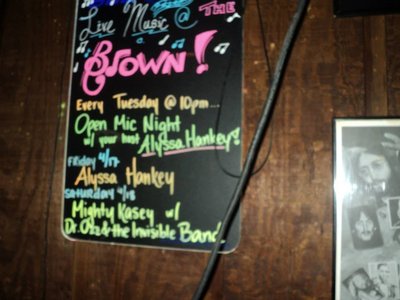 Live Music @ THE
Crown!
Every Tuesday @ 10pm...
Open Mic Night
w/ your host Alyssa Hankey!
Friday 4/17
Alyssa Hankey
Saturday 4/18
Mighty Kasey w/
& the Invisible Band